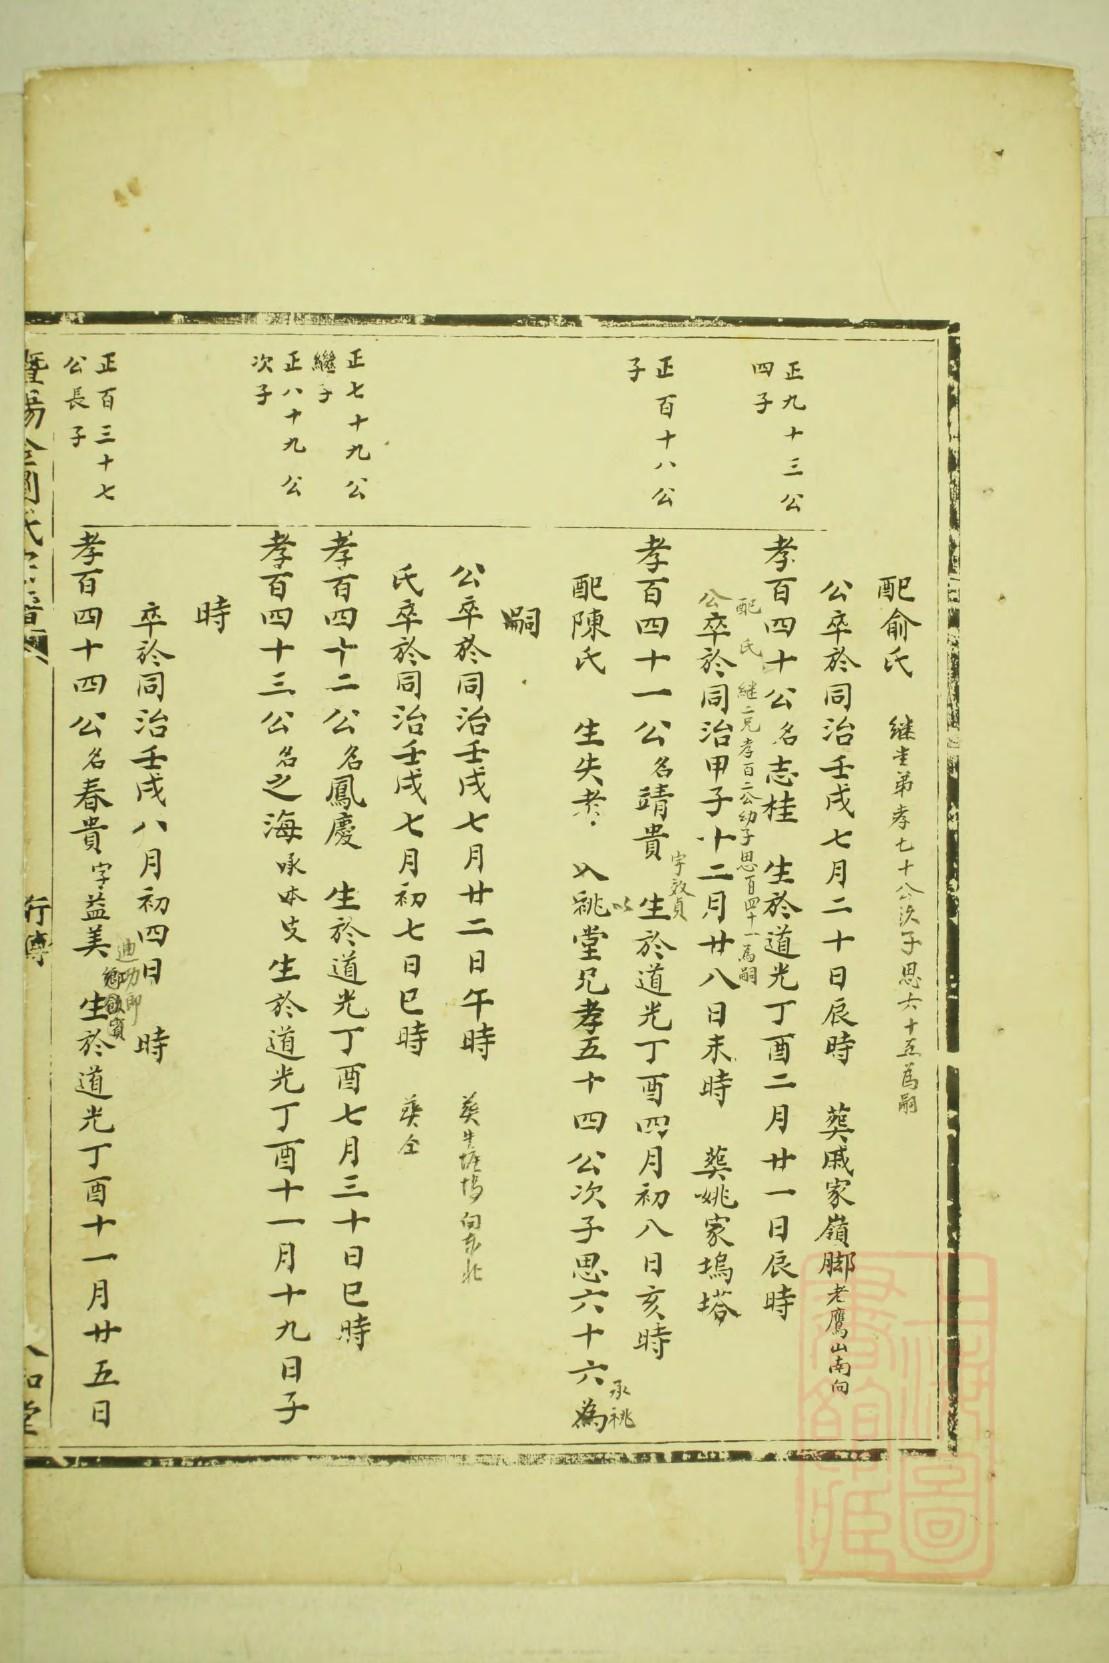 配俞氏 継堂弟孝七十公次子思六十五為嗣
公卒於同治壬戌七月二十日辰時 葬戚家嶺脚老鷹山南向
正九十三公
四子
孝百四十公名志桂 生於道光丁酉二月廿一日辰時
配 氏 継二兄孝百二公幼子思百四十一為嗣
公卒於同治甲子十二月廿八日未時 葬姚家塢塔
正百十八公
子
孝百四十一公名靖貴 字效貞 生於道光丁酉四月初八日亥時
配陳氏 生失考 以祧堂兄孝五十四公次子思六十六為
承祧
嗣
公卒於同治壬戌七月廿二日午時 葬牛塘塢向東北
氏卒於同治壬戌七月初七日巳時 葬仝
正七十九公
繼子
孝百四十二公名鳳慶 生於道光丁酉七月三十日巳時
正八十九公
次子
孝百四十三公名之海承本支生於道光丁酉十一月十九日子
時
卒於同治壬戌八月初四日 時
正百三十七
公長子
孝百四十四公名春貴字益美 迪功郎 鄉飲賓 生於道光丁酉十一月廿五日
行傳